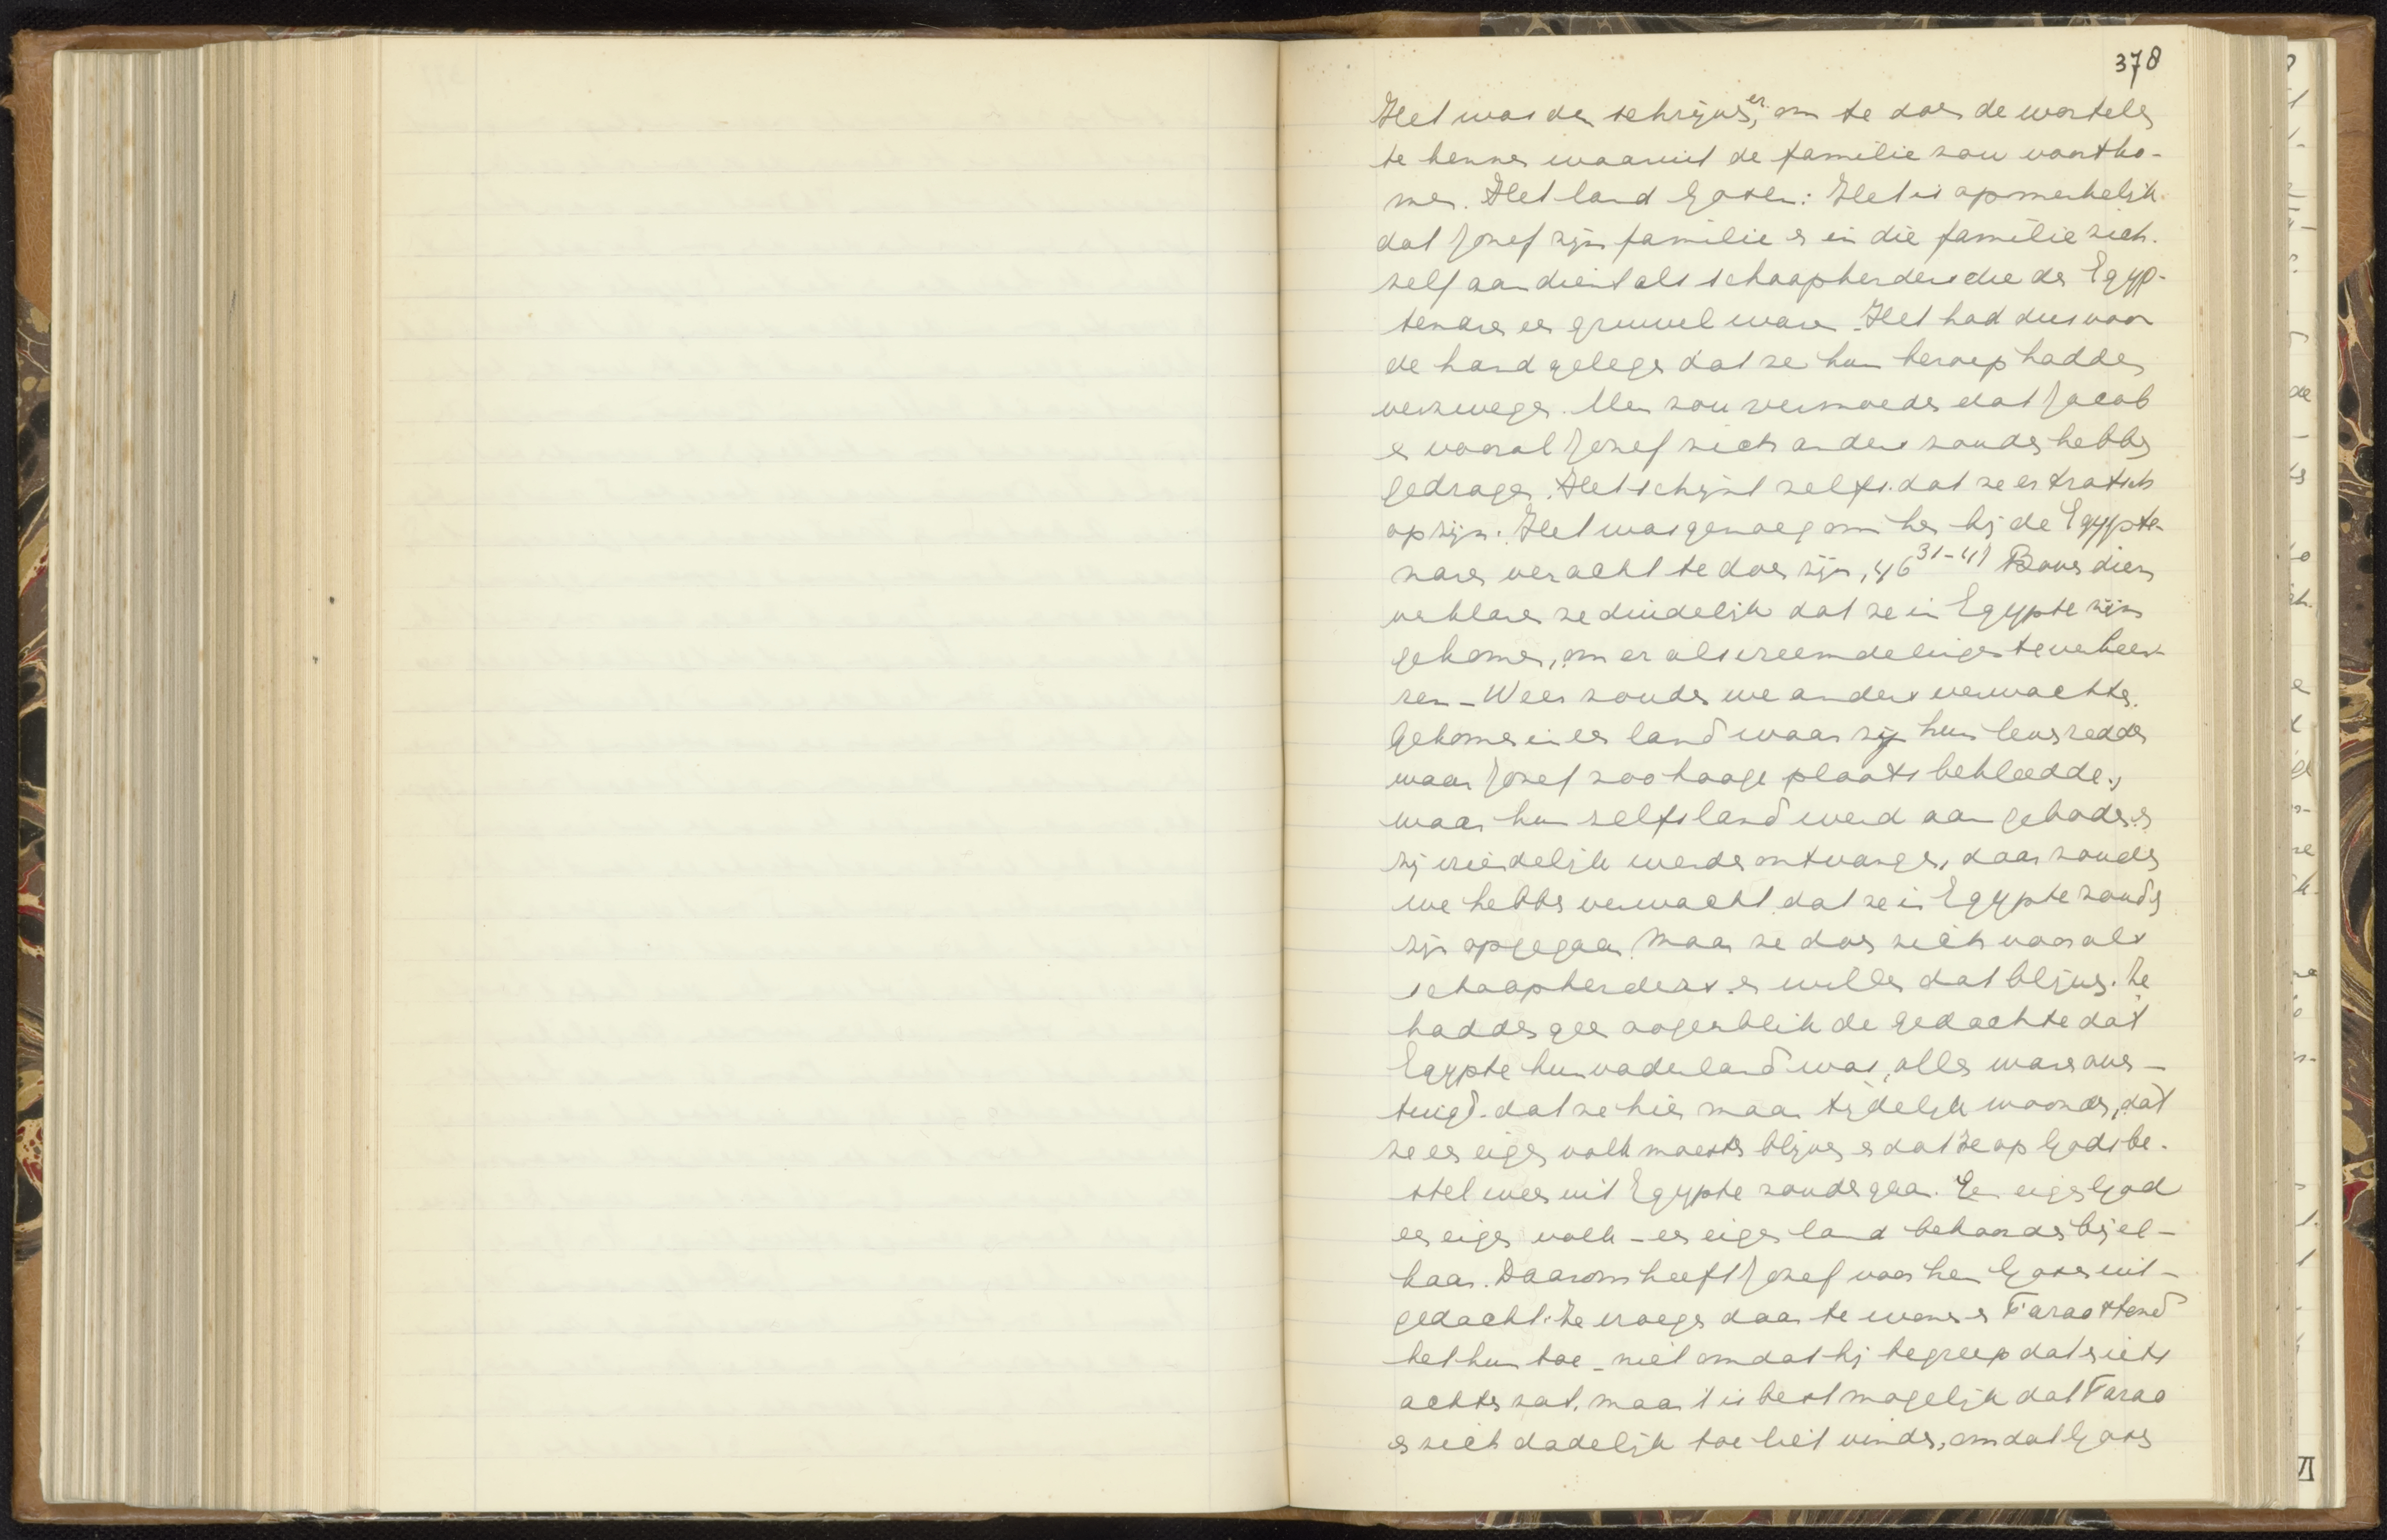 378
Het was den schrijver, om te doen de wortels
te kennen waaruit de familie zou voortko-
men. Het land Gosen: Het is opmerkelijk
dat Jozef zijn familie en in die familie zich-
zelf aandient als schaapherders die de Egyp-
tenaren een gruwel waren. Het had dus voor
de hand gelegen dat ze hun beroep hadden
verzwegen. Men zou vermoeden dat Jacob
en vooral Jozef zich anders zouden hebben
gedragen. Het schijnt zelfs dat ze er trotsch
op zijn. Het was genoeg om hen bij de Egypte-
naren veracht te doen zijn, 46 31-41 Bovendien
verklaren ze duidelijk dat ze in Egypte zijn
gekomen, om er als vreemdelingen te verkeer-
en - Weer zouden we anders verwachten.
Gekomen in een land waar zij hun leven redden
waar Jozef zoo hooge plaats bekleedde,
waar hun zelfs land werd aangeboden en
zij vriendelijk werden ontvangen, daar zouden
we hebben verwacht dat ze in Egypte zouden
zijn opgegaan. Maar ze doen zich voor als
schaapherders en willen dat blijven. Ze
hadden geen oogenblik de gedachte dat
Egypte hun vaderland was, allen waren over-
tuigd dat ze hier maar tijdelijk woonden, dat
ze een eigen volk moesten blijven en dat ze op Gods be-
stel weer uit Egypte zouden gaan. Een eigen God
een eigen volk - een eigen land behoorden bij el-
kaar. Daarom heeft Jozef voor hen Gosen uit-
gedacht. Ze vroegen daar te wonen en Farao stond
het hun toe - niet omdat hij begreep dat er iets
achter zat, maar 't is best mogelijk dat Farao
er zich dadelijk toe liet vinden, omdat Gosen